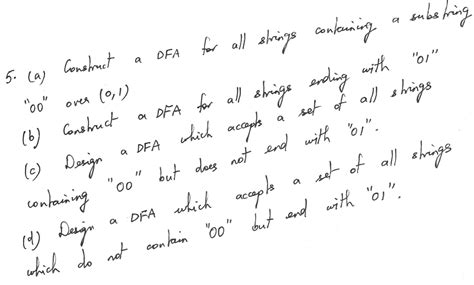 5. (a) Construct a DFA for all strings containing a substring
"00" over (0,1)
(b) Construct a DFA for all strings ending with "01"
(c) Design a DFA which accepts a set of all strings
containing "00" but does not end with "01".
(d) Design a DFA which accepts a set of all strings
which do not contain "00" but end with "01".